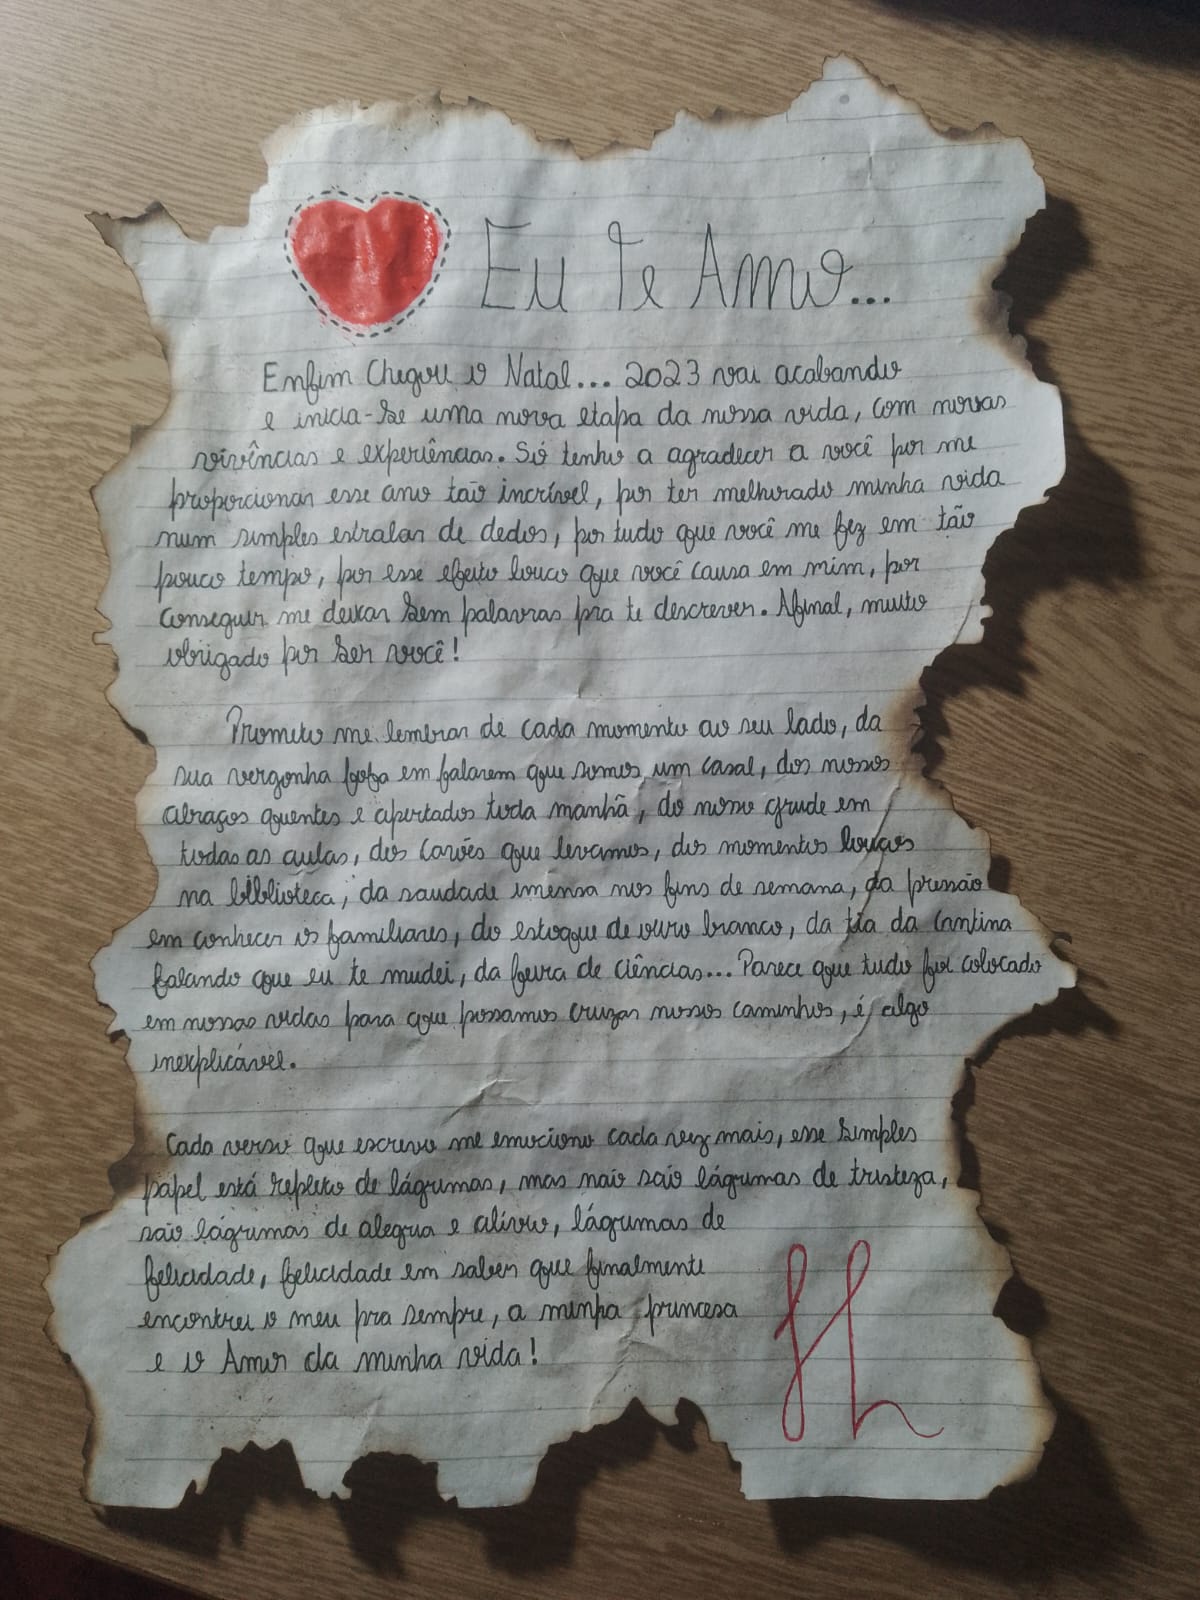 Eu Te Amo...
Enfim Chegou o Natal... 2023 vai acabando
e inicia-se uma nova etapa da nossa vida, com novas
vivências e experiências. Só tenho a agradecer a você por me
proporcionar esse ano tão incrível, por ter melhorado minha vida
num simples estralar de dedos, por tudo que você me fez em tão
pouco tempo, por esse efeito louco que você causa em mim, por
conseguir me deixar sem palavras pra te descrever. Afinal, muito
obrigado por ser você!
Prometo me lembrar de cada momento ao seu lado, da
sua vergonha fofa em falarem que somos um casal, dos nossos
abraços quentes e apertados toda manhã, do nosso grude em
todas as aulas, dos carões que levamos, dos momentos loucos
na biblioteca, da saudade imensa nos fins de semana, da pressão
em conhecer os familiares, do estoque de ouro branco, da tia da cantina
falando que eu te mudei, da feira de ciências... Parece que tudo foi colocado
em nossas vidas para que possamos cruzar nossos caminhos, é algo
inexplicável.
Cada verso que escrevo me emociono cada vez mais, esse simples
papel está repleto de lágrimas, mas não são lágrimas de tristeza,
são lágrimas de alegria e alívio, lágrimas de
felicidade, felicidade em saber que finalmente
encontrei o meu pra sempre, a minha princesa
e o Amor da minha vida!